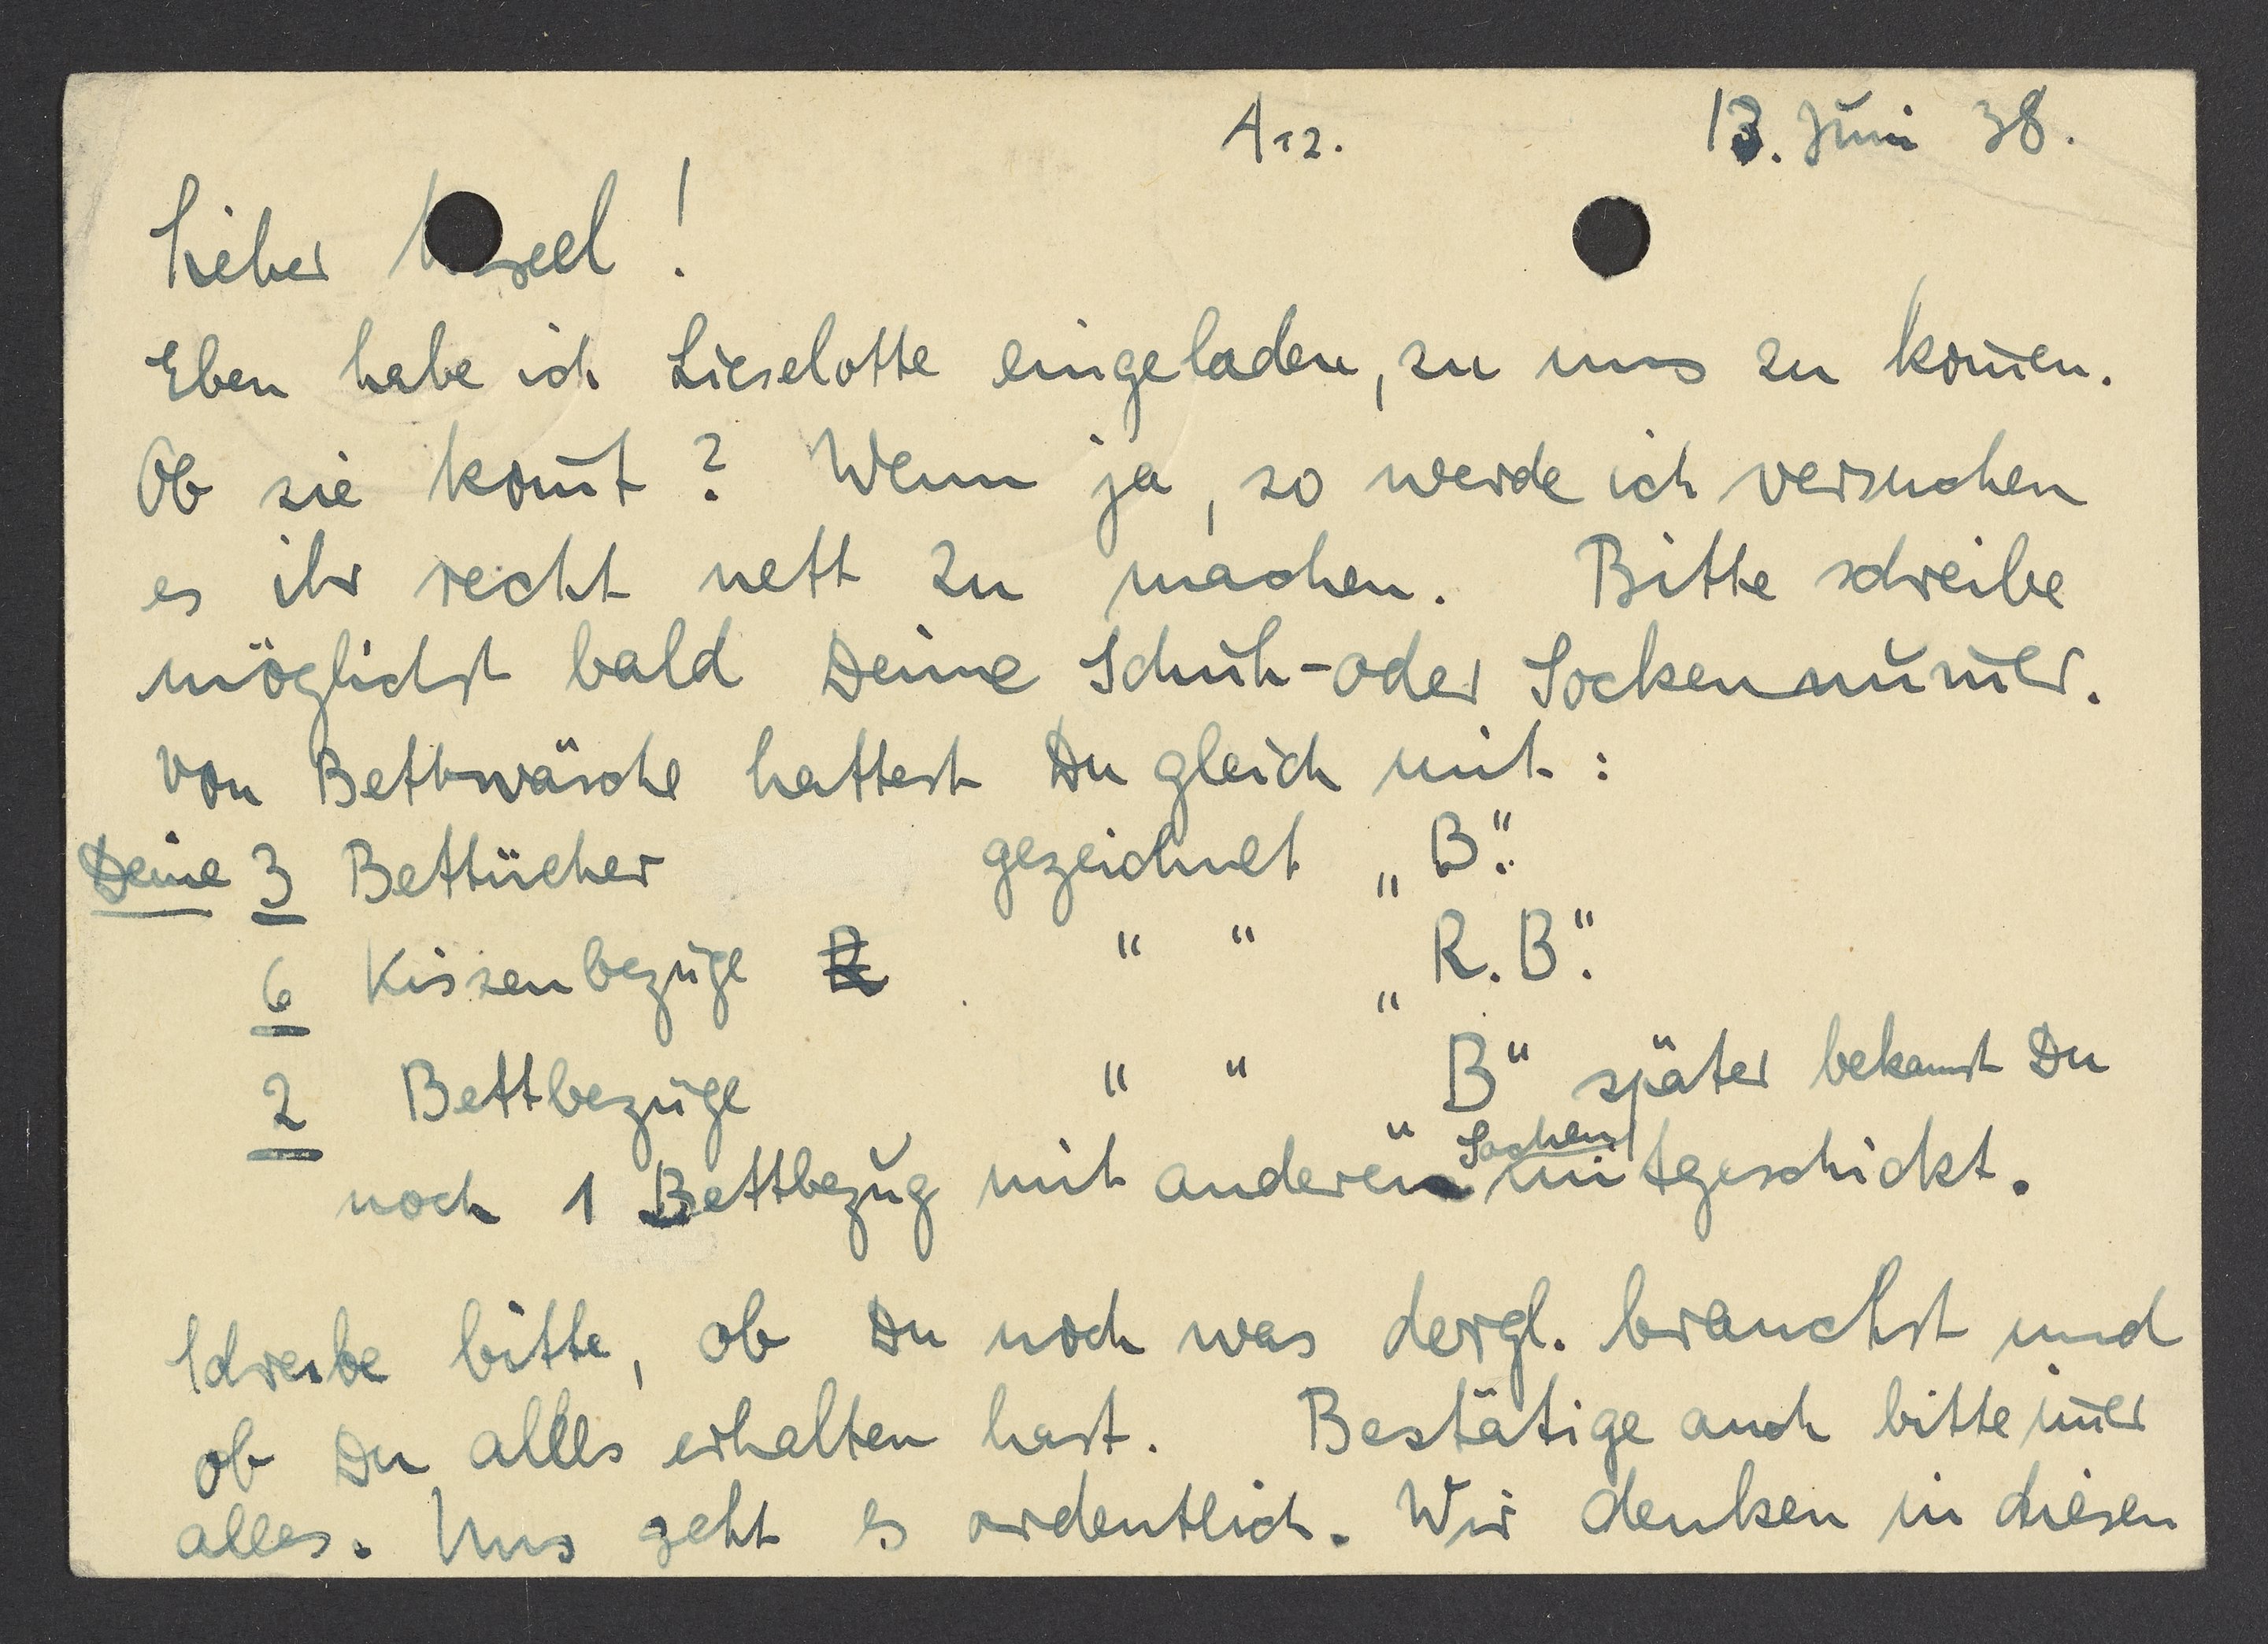 13. Juni 38.
Lieber
Eben habe ich Lieselotte eingeladen, zu uns zu kom̄en.
Ob sie kom̄t? Wenn ja, so werde ich versuchen
es ihr recht nett zu machen. Bitte schreibe
möglichst bald Deine Schuh- oder Sockennum̄er.
Von Bettwäsche hattest Du gleich mit:
Deine 3 Bettücher gezeichnet „B."
6 Kissenbezüge " " „R.B."
2 Bettbezüge " " „B" später bekamst Du
noch 1 Bettbezug mit anderen Sachen mitgeschickt.
Schreibe bitte, ob Du noch was dergl. brauchst und
ob Du alles erhalten hast. Bestätige auch bitte im̄er
alles. Uns geht es ordentlich. Wir denken in diesen